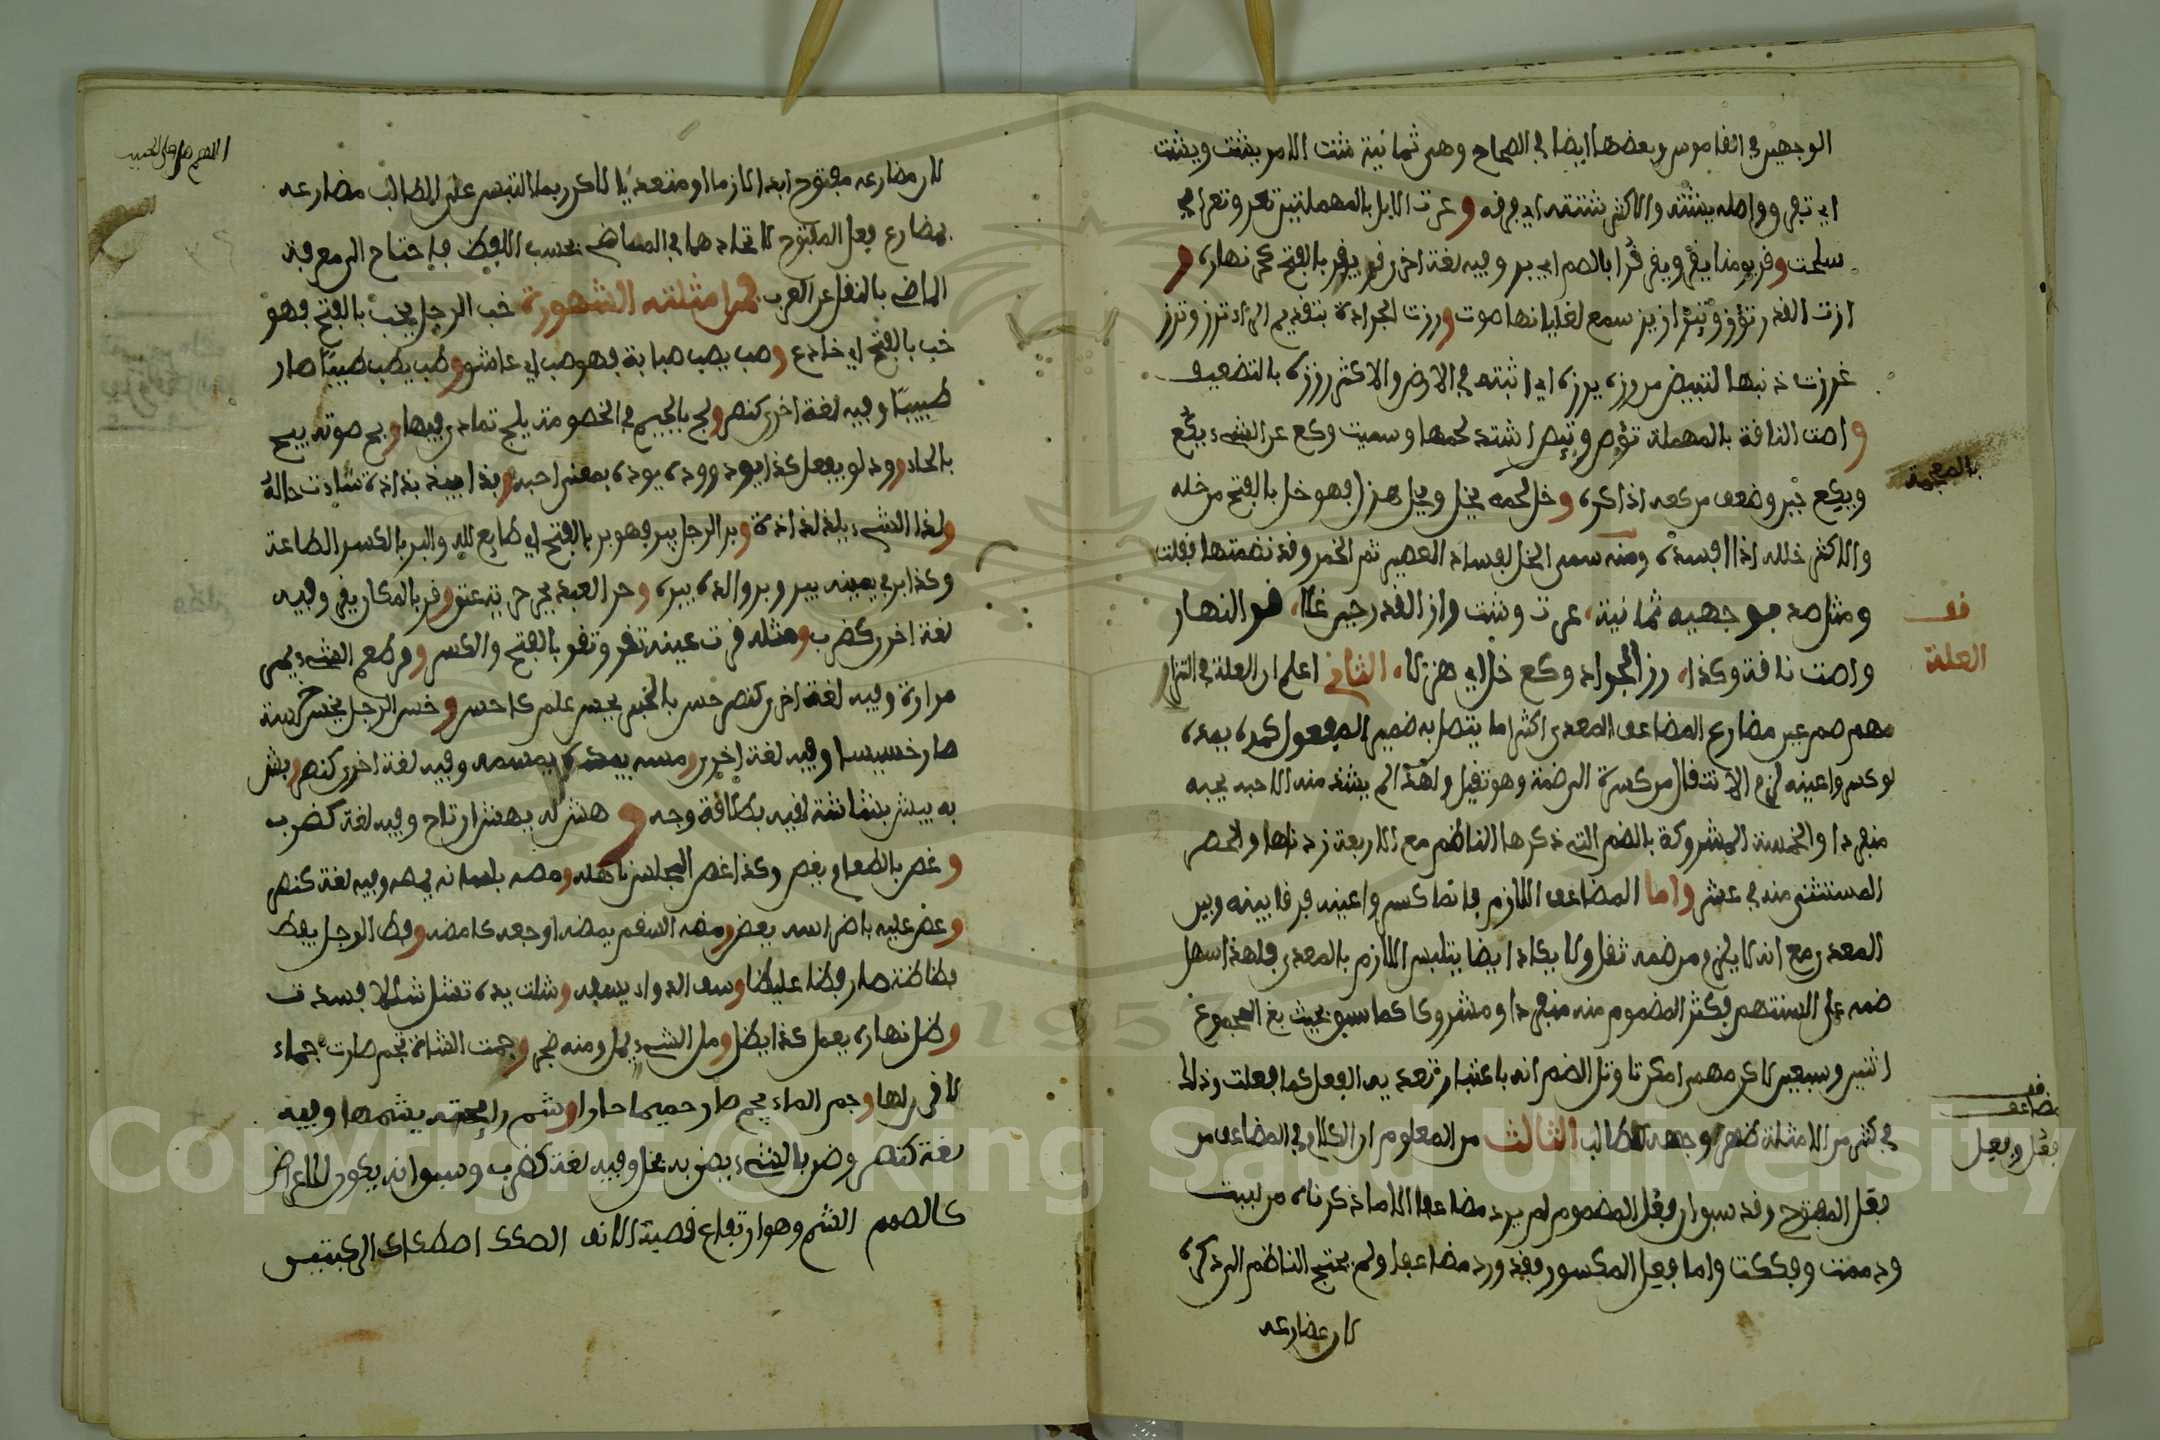 الوجهين في القاموس وبعضها ايضا في الصحاح وهي ثمانية شت الامر يشت ويشت
اي تفرق وواصله يشته والاكثر شتته اي فرقه وعرت الابل بالمهملتين تعر وتعر اي
سلحت وقر يومنا يقر ويقر قرا بالضم اي برد وفيه لغة اخرى قر يقر بالفتح كحر نهاره و
ازت القدر تؤز وتئز ازيز سمع لغليانها صوت ورزت الجرادة بتقديم الراء ترز وترز
غرزت ذنبها لتبيض من رزه يرزه اي اثبته في الارض والاكثر رززه بالتضعيف
واصت الناقة بالمهملة تؤص وتئص اشتد لحمها وسمنت وكع عن الشيء يكع
ويكع جبن وضعف من كعه اذا كره وخل لحمه يخل ويخل هزل فهو خل بالفتح من خله
والاكثر خلله اذا افسده ومنه سمي الخل لفساد العصير ثم الخمر وقد نظمتها فقلت
ومثل صد بوجهيه ثمانية عرت وشت واز القدر حين غلا قر النهار
واصت ناقة وكذا رز الجراد وكع خل اي هزلا الثاني اعلم ان العلة في التزام
قف
العلة
بالمعجمة
مهم ضم عين مضارع المضاعف المعدى اكثر ما يتصل به ضمير المفعول كمده يمده
لو كسروا عينه لزم الانتقال من كسرة الى ضمة وهو ثقيل ولهذا لم يشذ منه الا حبه يحبه
منفردا والخمسة المشروكة بالضم التي ذكرها الناظم مع الاربعة زدناها وانحصر
المستثنى منه في عشر واما المضاعف اللازم فانما كسروا عينه فرقا بينه وبين
المعدى مع انه لا يلزم من ضمه ثقل ولا يكاد ايضا يلتبس اللازم بالمعدى فلهذا سهل
ضمه على السنتهم فكثر المضموم منه منفردا ومشروكا كما سبق بحيث بلغ المجموع
اثنين وسبعين لاكن مهما امكن تاول الضم انه باعتبار تعديه الفعل كما فعلت وذلك
في كثير من الامثلة ظهر وجهه للطالب الثالث من المعلوم ان الكلام في المضاعف من
فعل المفتوح وقد سبق ان فعل المضموم لم يرد مضاعفا الا ما ذكرناه من لببت
ودممت وفككت واما فعل المكسور فقد ورد مضاعفا ولم يحتج الناظم الى ذكره
لان مضارعه
قف
مضاعف
فعل وفعل
لان مضارعه مفتوح ابدا لازما او متعديا لاكن ربما التبس على الطالب مضارعه
بمضارع فعل المفتوح لاتحادهما في الماضي بحسب اللفظ فاحتاج الى معرفة
الماضي بالنقل عن العرب فمن امثلته المشهورة خب الرجل يخب بالفتح فهو
خب بالفتح اي خادع وصب يصب صبابة فهو صب اي عاشق وطب يطب طبيبا صار
طبيبا وفيه لغة اخرى كنصر ولج بالجيم في الخصومة يلج تمادى فيها وبح صوته يبح
بالحاء وود لو يفعل كذا يود ووده يوده بمعنى احبه وبذا يبذ بذاذة ساءت حاله
ولذا الشيء يلذ لذاذة وبر الرجل يبر فهو بر بالفتح اي طايع لله والبر بالكسر الطاعة
وكذا بر في يمينه يبر وبر والده يبره وحر العبد يحر حرية عتق وقر بالمكان يقر وفيه
لغة اخرى كضرب ومثله قرت عينه تقر وتقر بالفتح والكسر ومر طعم الشيء يمر
مرارة وفيه لغة اخرى كنصر حس بالخبر يحس علم كاحس وخس الرجل يخس خسة
صار خسيسا وفيه لغة اخرى ومسه يمسه وفيه لغة اخرى كنصر وبش
به يبش بشاشة لقيه بطلاقة وجه وهش له يهش ارتاح وفيه لغة كضرب
وغص بالطعام يغص وكذا غص المجلس باهله ومصه بلسانه يمصه وفيه لغة كنصر
وعض عليه باضراسه يعض ومضه السقم يمضه اوجعه كامضه وفظ الرجل يفظ
فظاظة صار فظا غليظا وسف الدواء يسفه وشلت يده تشل شللا فسدت
وظل نهاره يعمل كذا يظل ومل الشيء يمل ومنه ضجر وجمت الشاة تجم صارت جماء
لا قرن لها وحم الماء يحم صار حميما حارا وشم رائحته يشمها وفيه
لغة كنصر وضن بالشيء يضن به بخل وفيه لغة كضرب وسبق انه يكون للاعراض
كالصمم الشم وهو ارتفاع قصبة الانف الصكك اصطكاك الركبتين